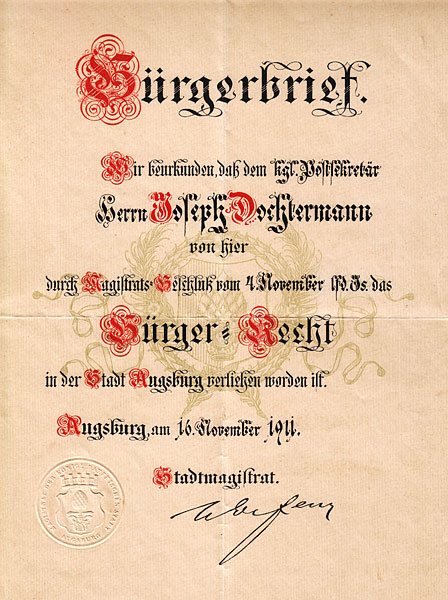 Bürgerbrief.
Wir beurkunden, daß dem kgl. Postsekretär
Herrn Joseph Dochtermann
von hier
durch Magistrats-Beschluß vom 4. November lfd. Js. das
Bürger-Recht
in der Stadt Augsburg verliehen worden ist.
Augsburg, am 16. November 1911.
Stadtmagistrat.
AUGSBURG